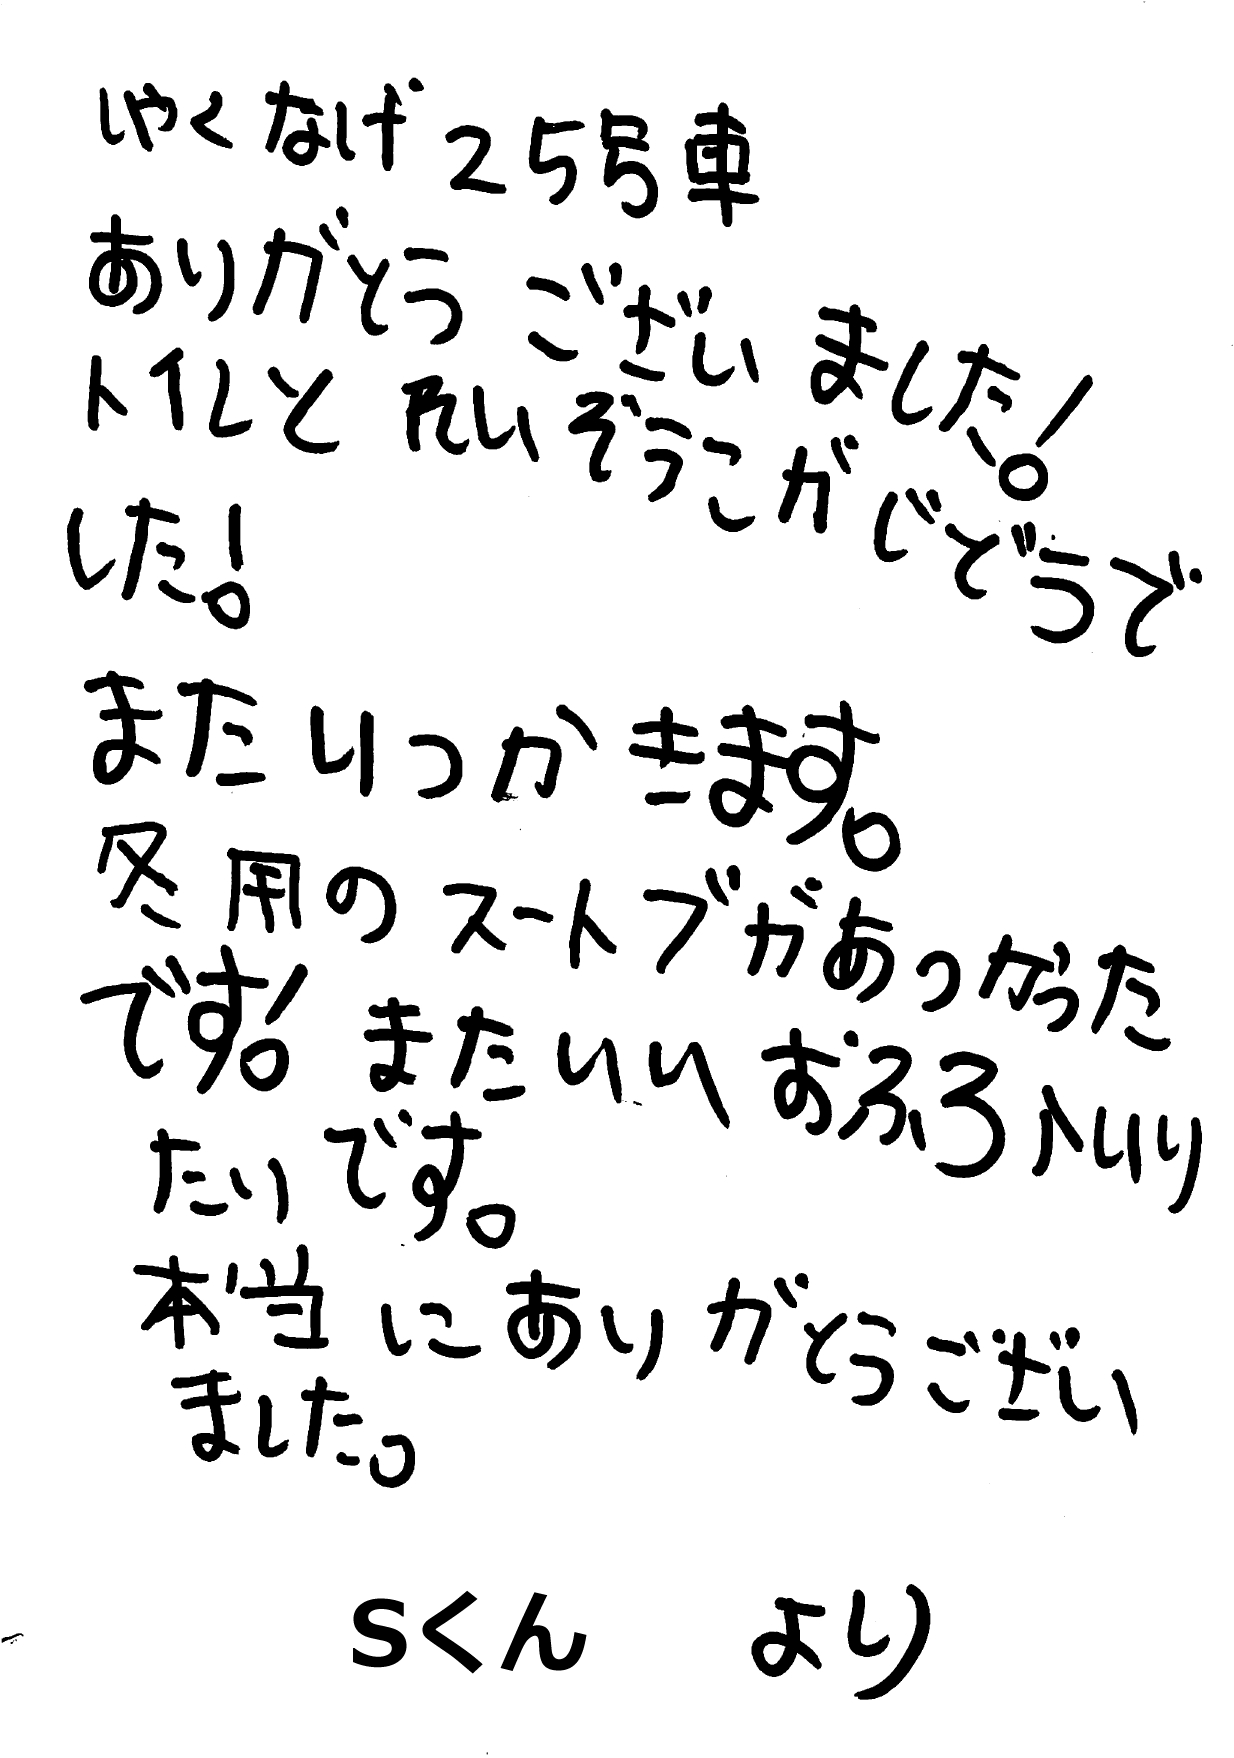 しゃくなげ25号車
ありがとうございました!
トイレと れいぞうこがじどうで
した!
またいつかきます。
冬用のスートブがあつかった
です!またいいおふろ入いり
たいです。
本当にありがとうござい
ました。
Sくん より